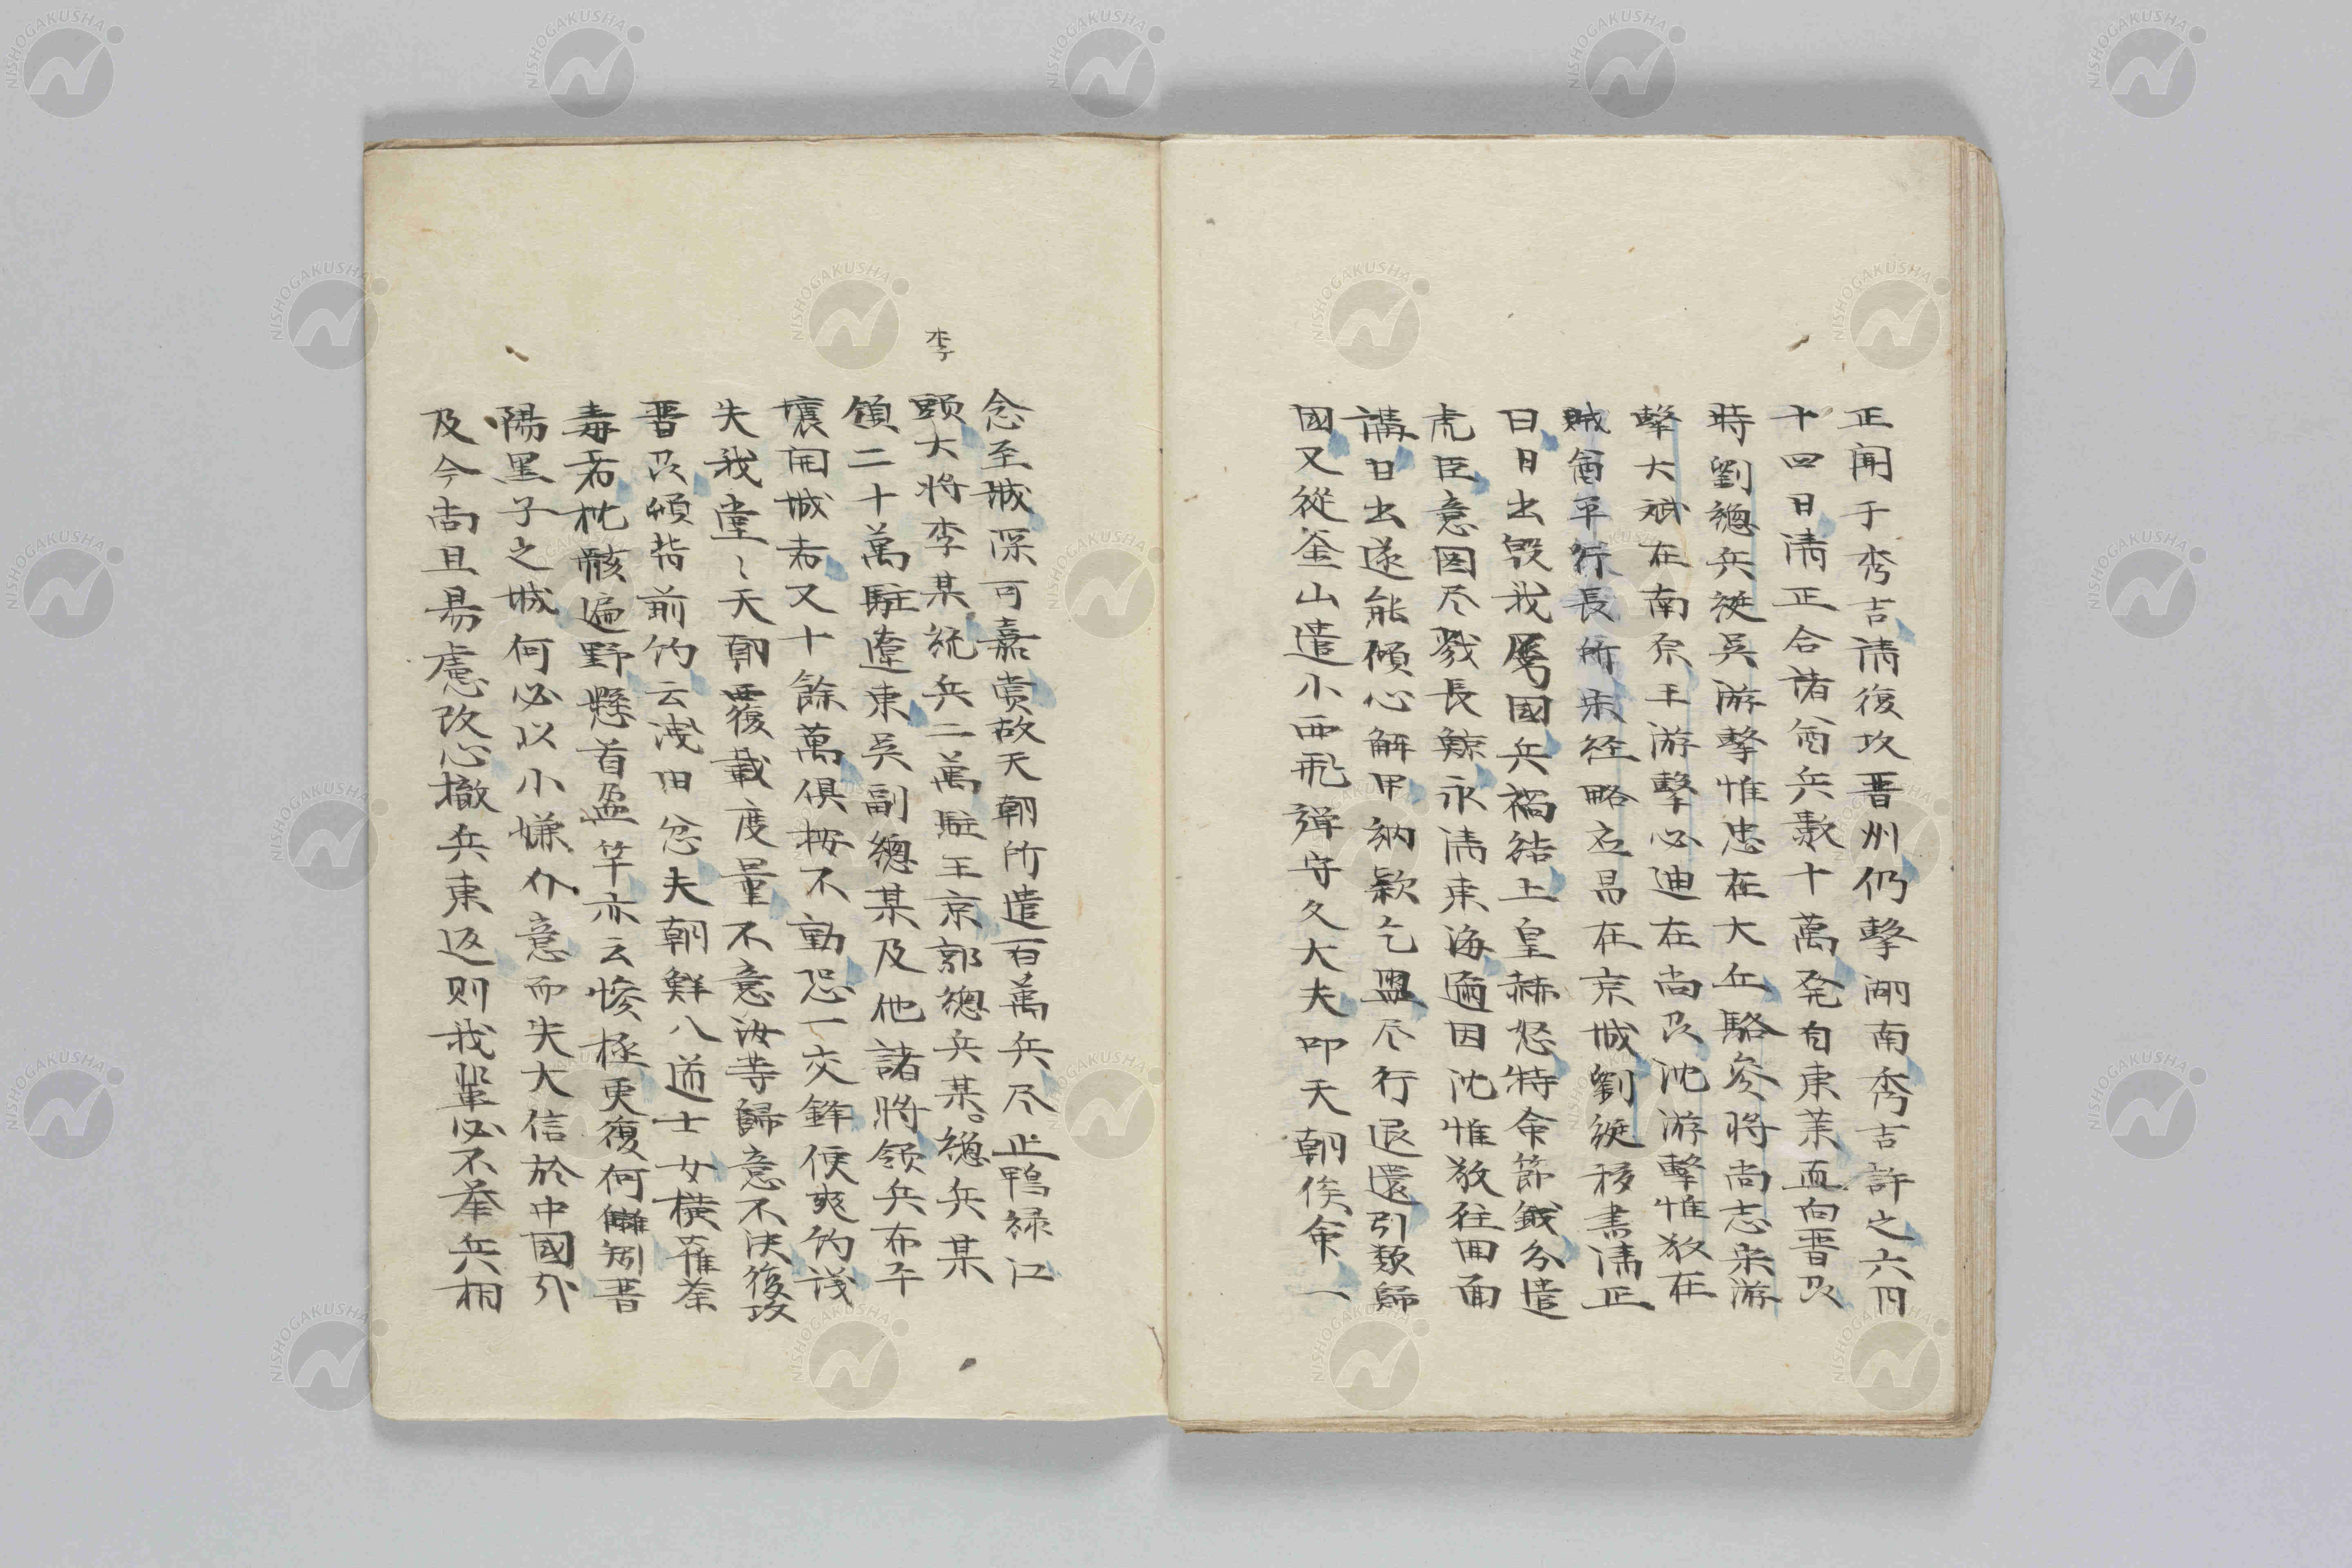 正聞于秀吉請復攻晋州仍擊湖南秀吉許之六月
十四日清正合諸酋兵數十萬発自東萊直向晋以
時劉總兵綎吳游擊惟忠在大丘駱參將尚志宋游
擊大斌在南原王游擊必迪在尚以沈游擊惟敬在
賊酋平行長所宋経略応昌在京城劉綎移書清正
曰日出毀我属國兵禍結上皇赫怒特命節鉞分遣
虎臣意図尽戮長鯨永清東海適因沈惟敬往回面
講日出遂能傾心解甲納款乞盟尽行退還引類歸
國又從釜山遣小西飛弾守久大夫叩天朝俟命一
念至城深可嘉賞故天朝所遣百萬兵尽止鴨緑江
李
頭大將李某統兵二萬駐王京郭總兵某總兵某
領二十萬駐遼東吳副總某及他諸將領兵布平
壤開城者又十餘萬俱按不動恐一交鋒便爽約誤
失我堂〻天朝覆載度量不意汝等歸意不決復攻
晋以頓背前約云洩旧忿夫朝鮮八道士女横罹荼
毒若枕骸遍野懸首盈竿亦云惨極更復何讎矧晋
陽黒子之城何必以小嫌介意而失大信於中國外
及今尚且易慮改心撤兵東返則我輩必不挙兵相